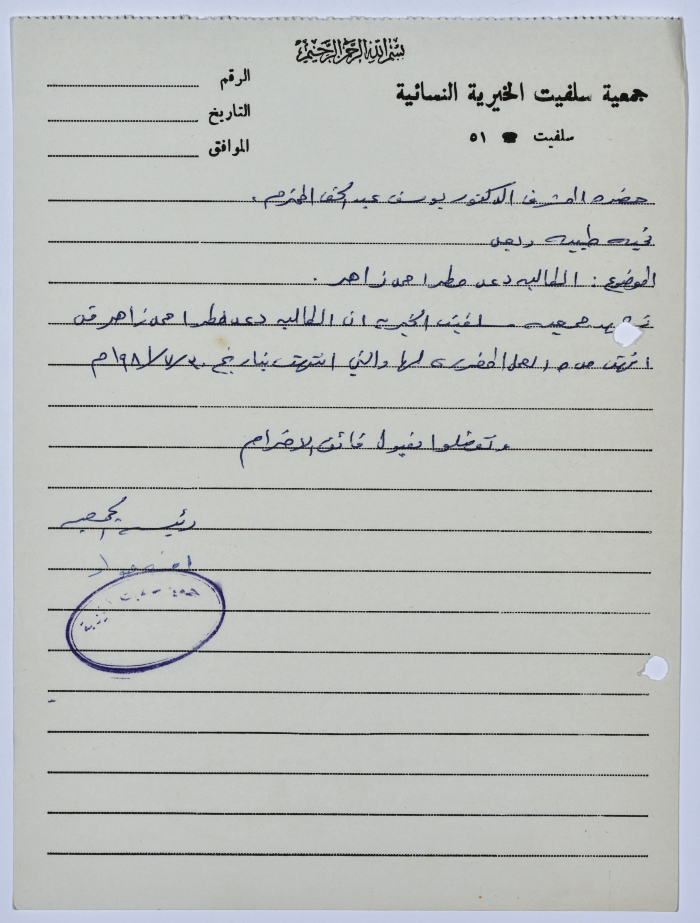 بسم الله الرحمن الرحيم
جمعية سلفيت الخيرية النسائية
سلفيت ☎ ٥١
الرقم
التاريخ
الموافق
حضرة المشرف الدكتور يوسف عبد الحق المحترم .
تحيه طيبه وبعد
الموضوع : الطالبه دعد مطر احمد زاهر .
تشهد جمعيه سلفيت الخيريه ان الطالبه دعد مطر احمد زاهر قد
انتهت من العمل لها والتي انتهت بتاريخ ٣٠/٧/١٩٨ م
وتفضلوا بقبول فائق الاحترام
رئيسة الجمعيه